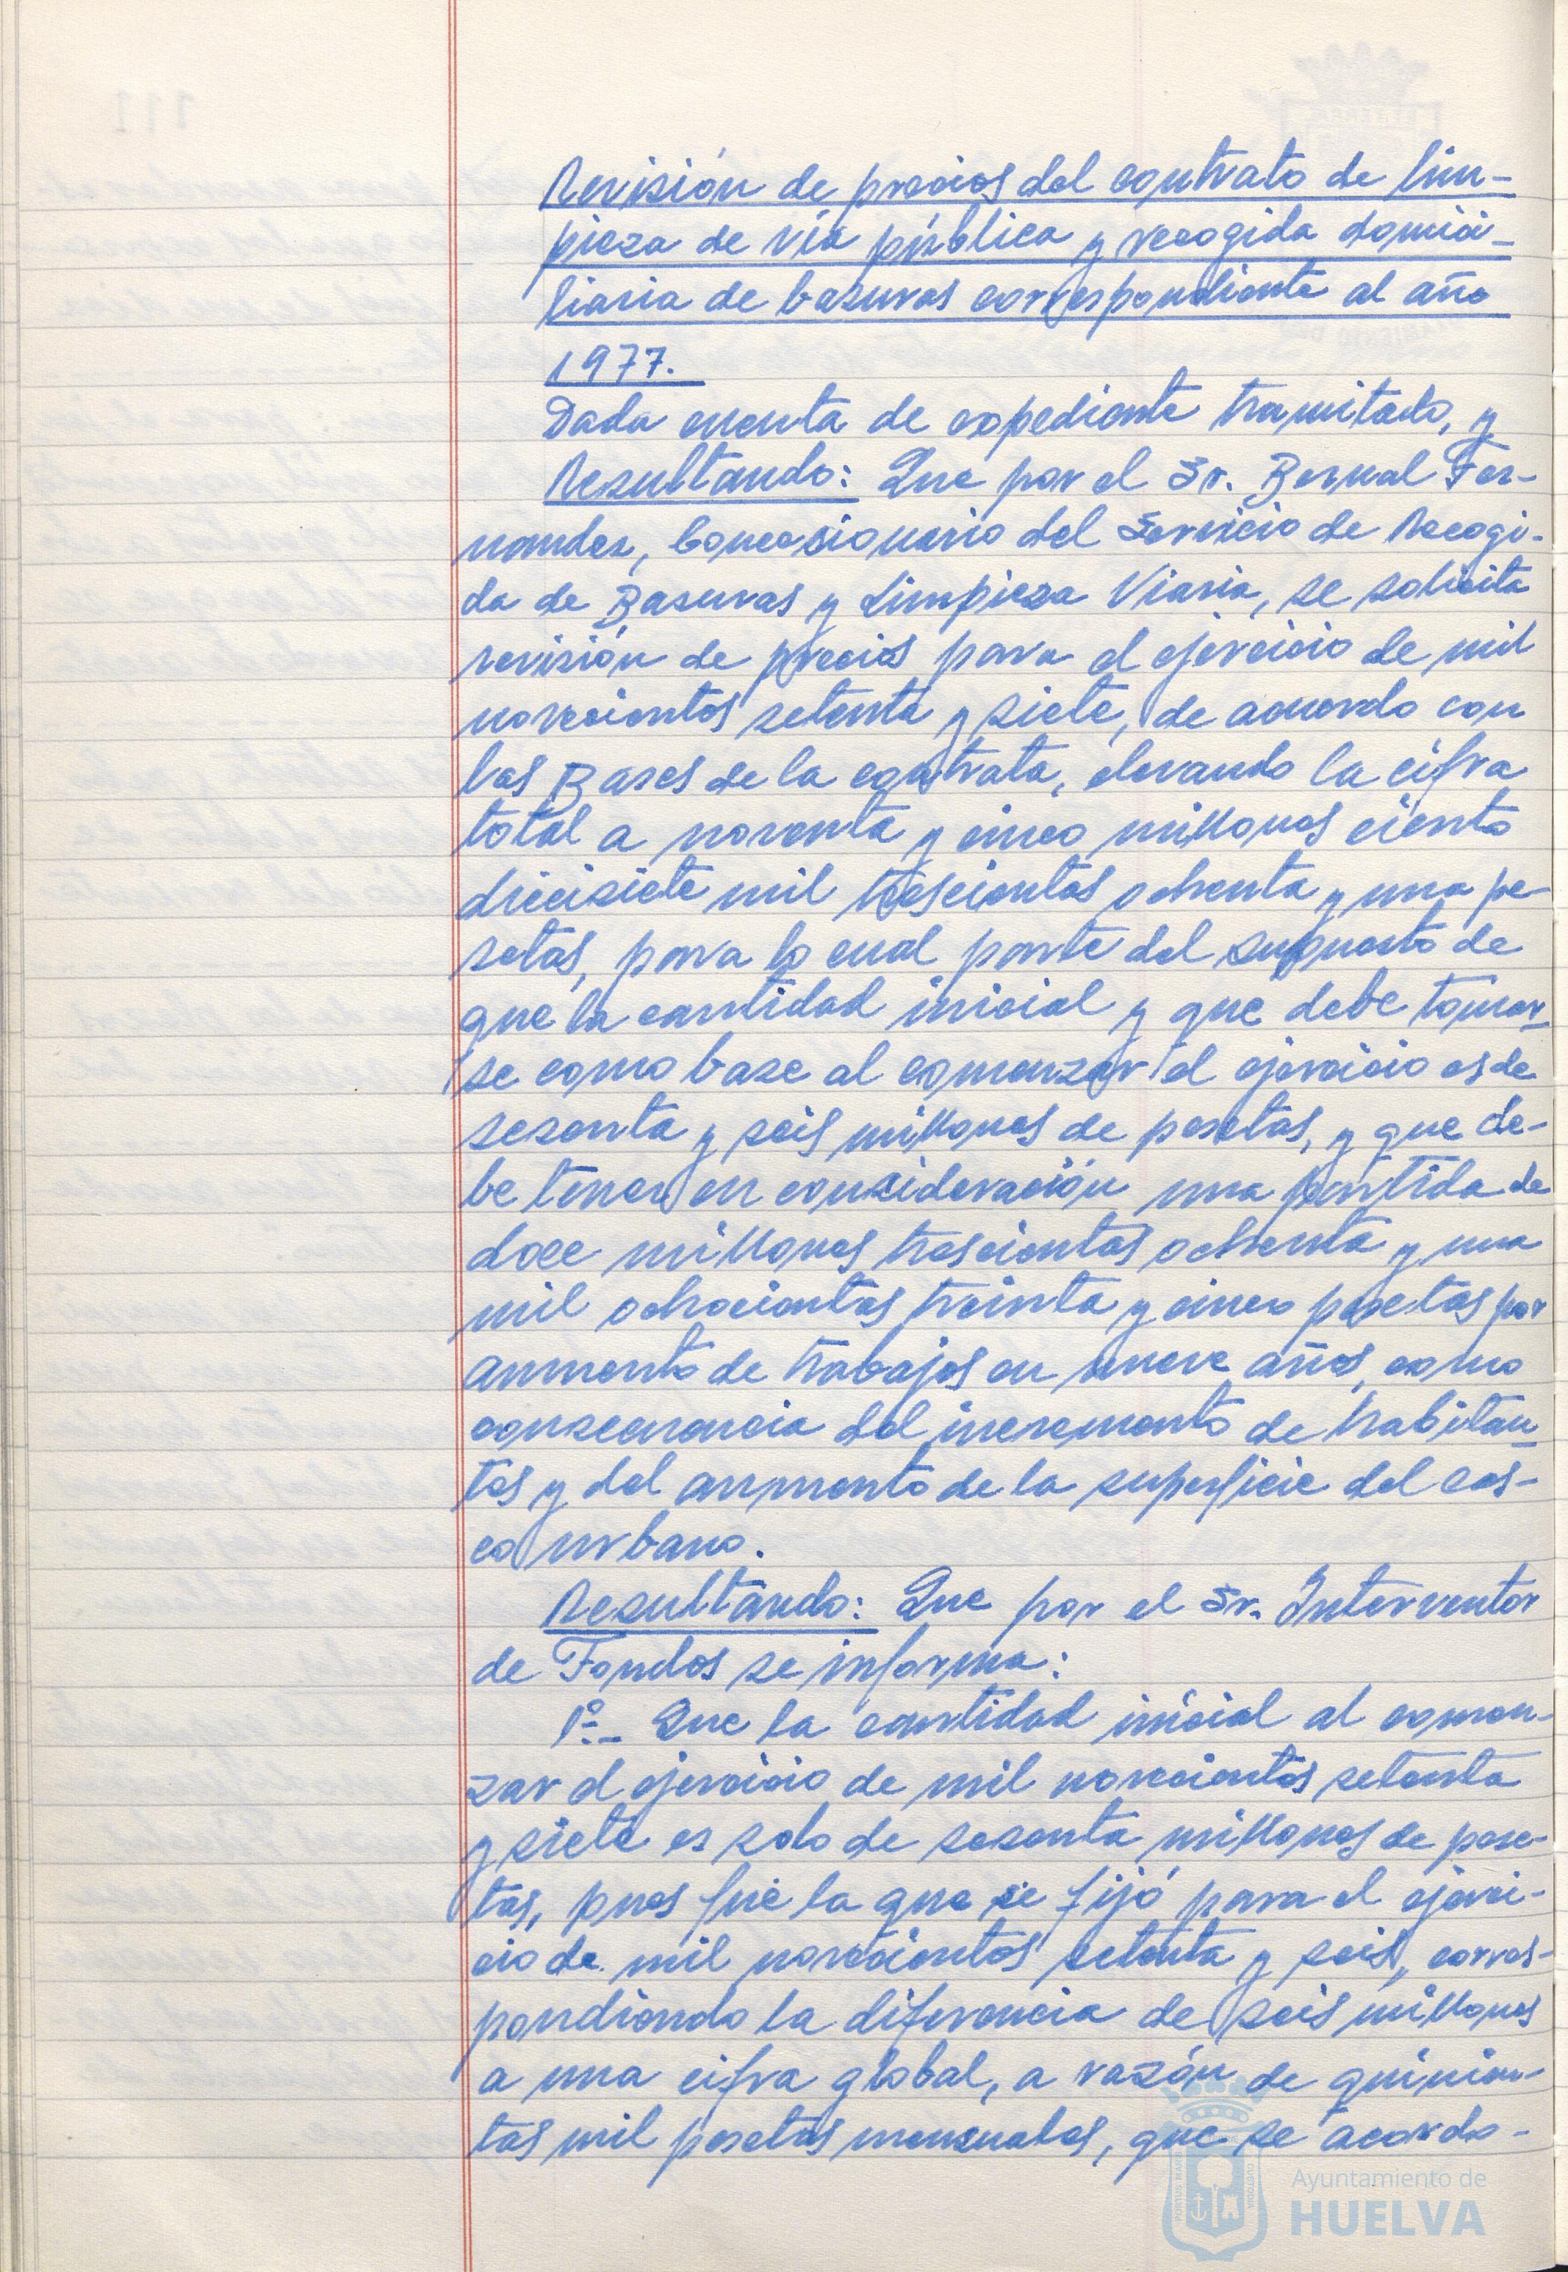 Revisión de precios del contrato de lim-
pieza de vía pública y recogida domici-
liaria de basuras correspondiente al año
1977.
Dada cuenta de expediente tramitado, y
Resultando: Que por el Sr. Bernal Fer-
nandez, Concesionario del Servicio de Recogi-
da de Basuras y Limpieza Viaria, se solicita
revisión de precios para el ejercicio de mil
novecientos setenta y siete, de acuerdo con
las Bases de la contrata, elevando la cifra
total a noventa y cinco millones ciento
diecisiete mil trescientas ochenta y una pe-
setas, para lo cual parte del supuesto de
que la cantidad inicial y que debe tomar-
se como base al comenzar el ejercicio es de
sesenta y seis millones de pesetas, y que de-
be tener en consideración una partida de
doce millones trescientas ochenta y una
mil ochocientas treinta y cinco pesetas por
aumento de trabajos en nueve años, como
consecuencia del incremento de habitan-
tes y del aumento de la superficie del cas-
co urbano.
Resultando: Que por el Sr. Interventor
de Fondos se informa:
1º.- Que la cantidad inicial al comen-
zar el ejercicio de mil novecientos setenta
y siete es solo de sesenta millones de pese-
tas, pues fue la que se fijó para el ejerci-
cio de mil novecientos setenta y seis, corres-
pondiendo la diferencia de seis millones
a una cifra global, a razón de quinien-
tas mil pesetas mensuales, que se acordo-
Ayuntamiento de
HUELVA